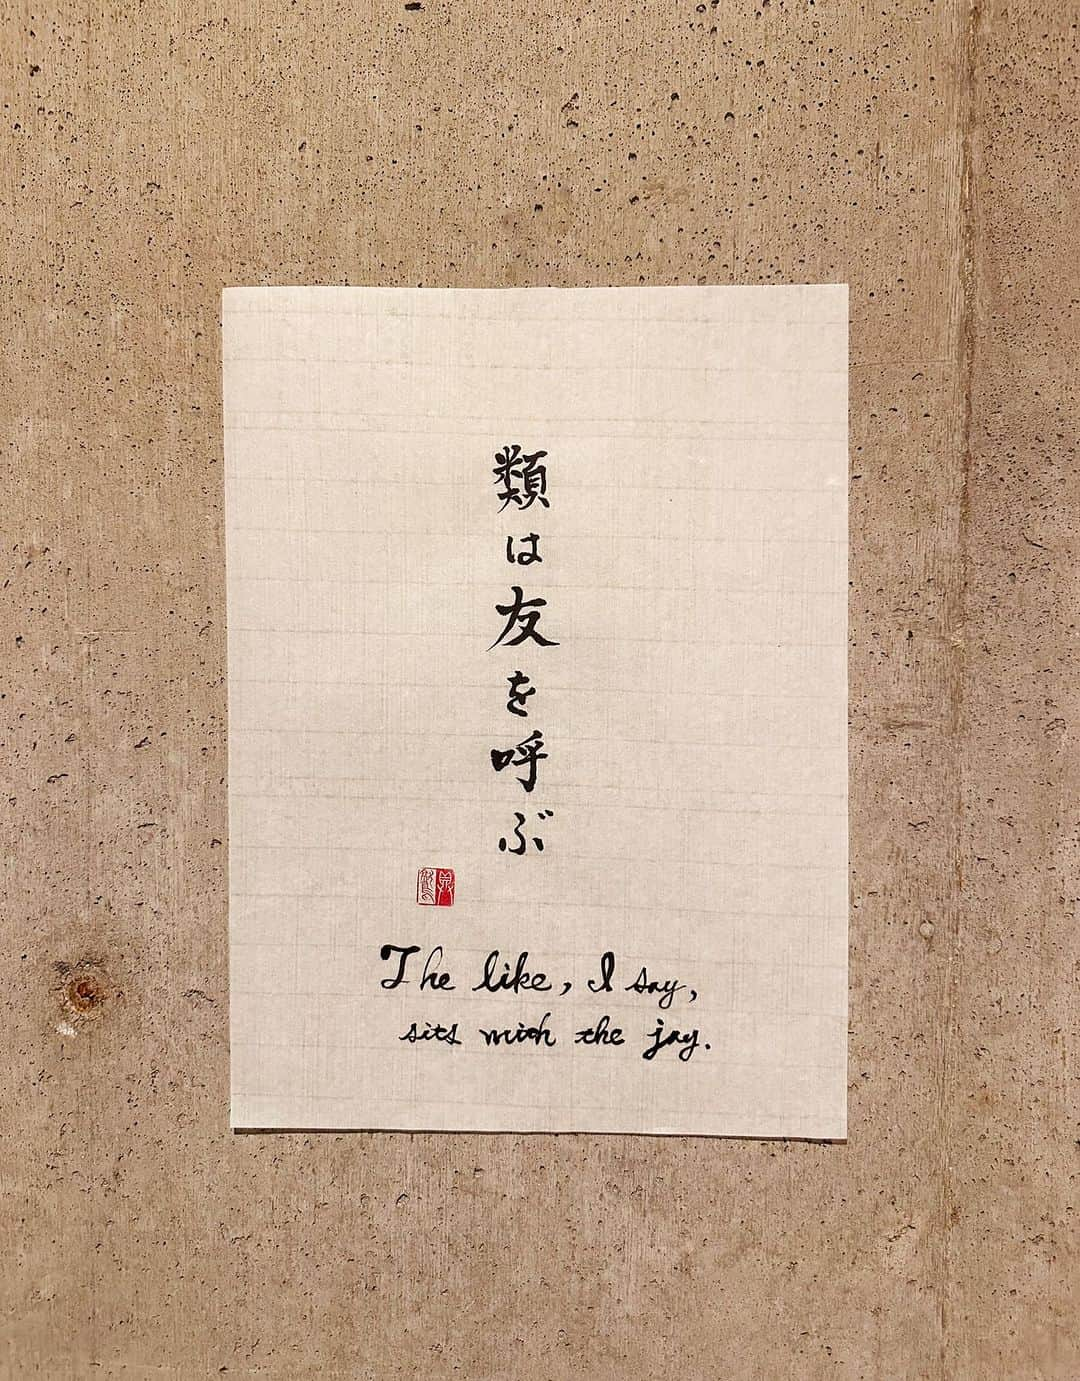 類は友を呼ぶ
The like, I say,
sits with the jay.